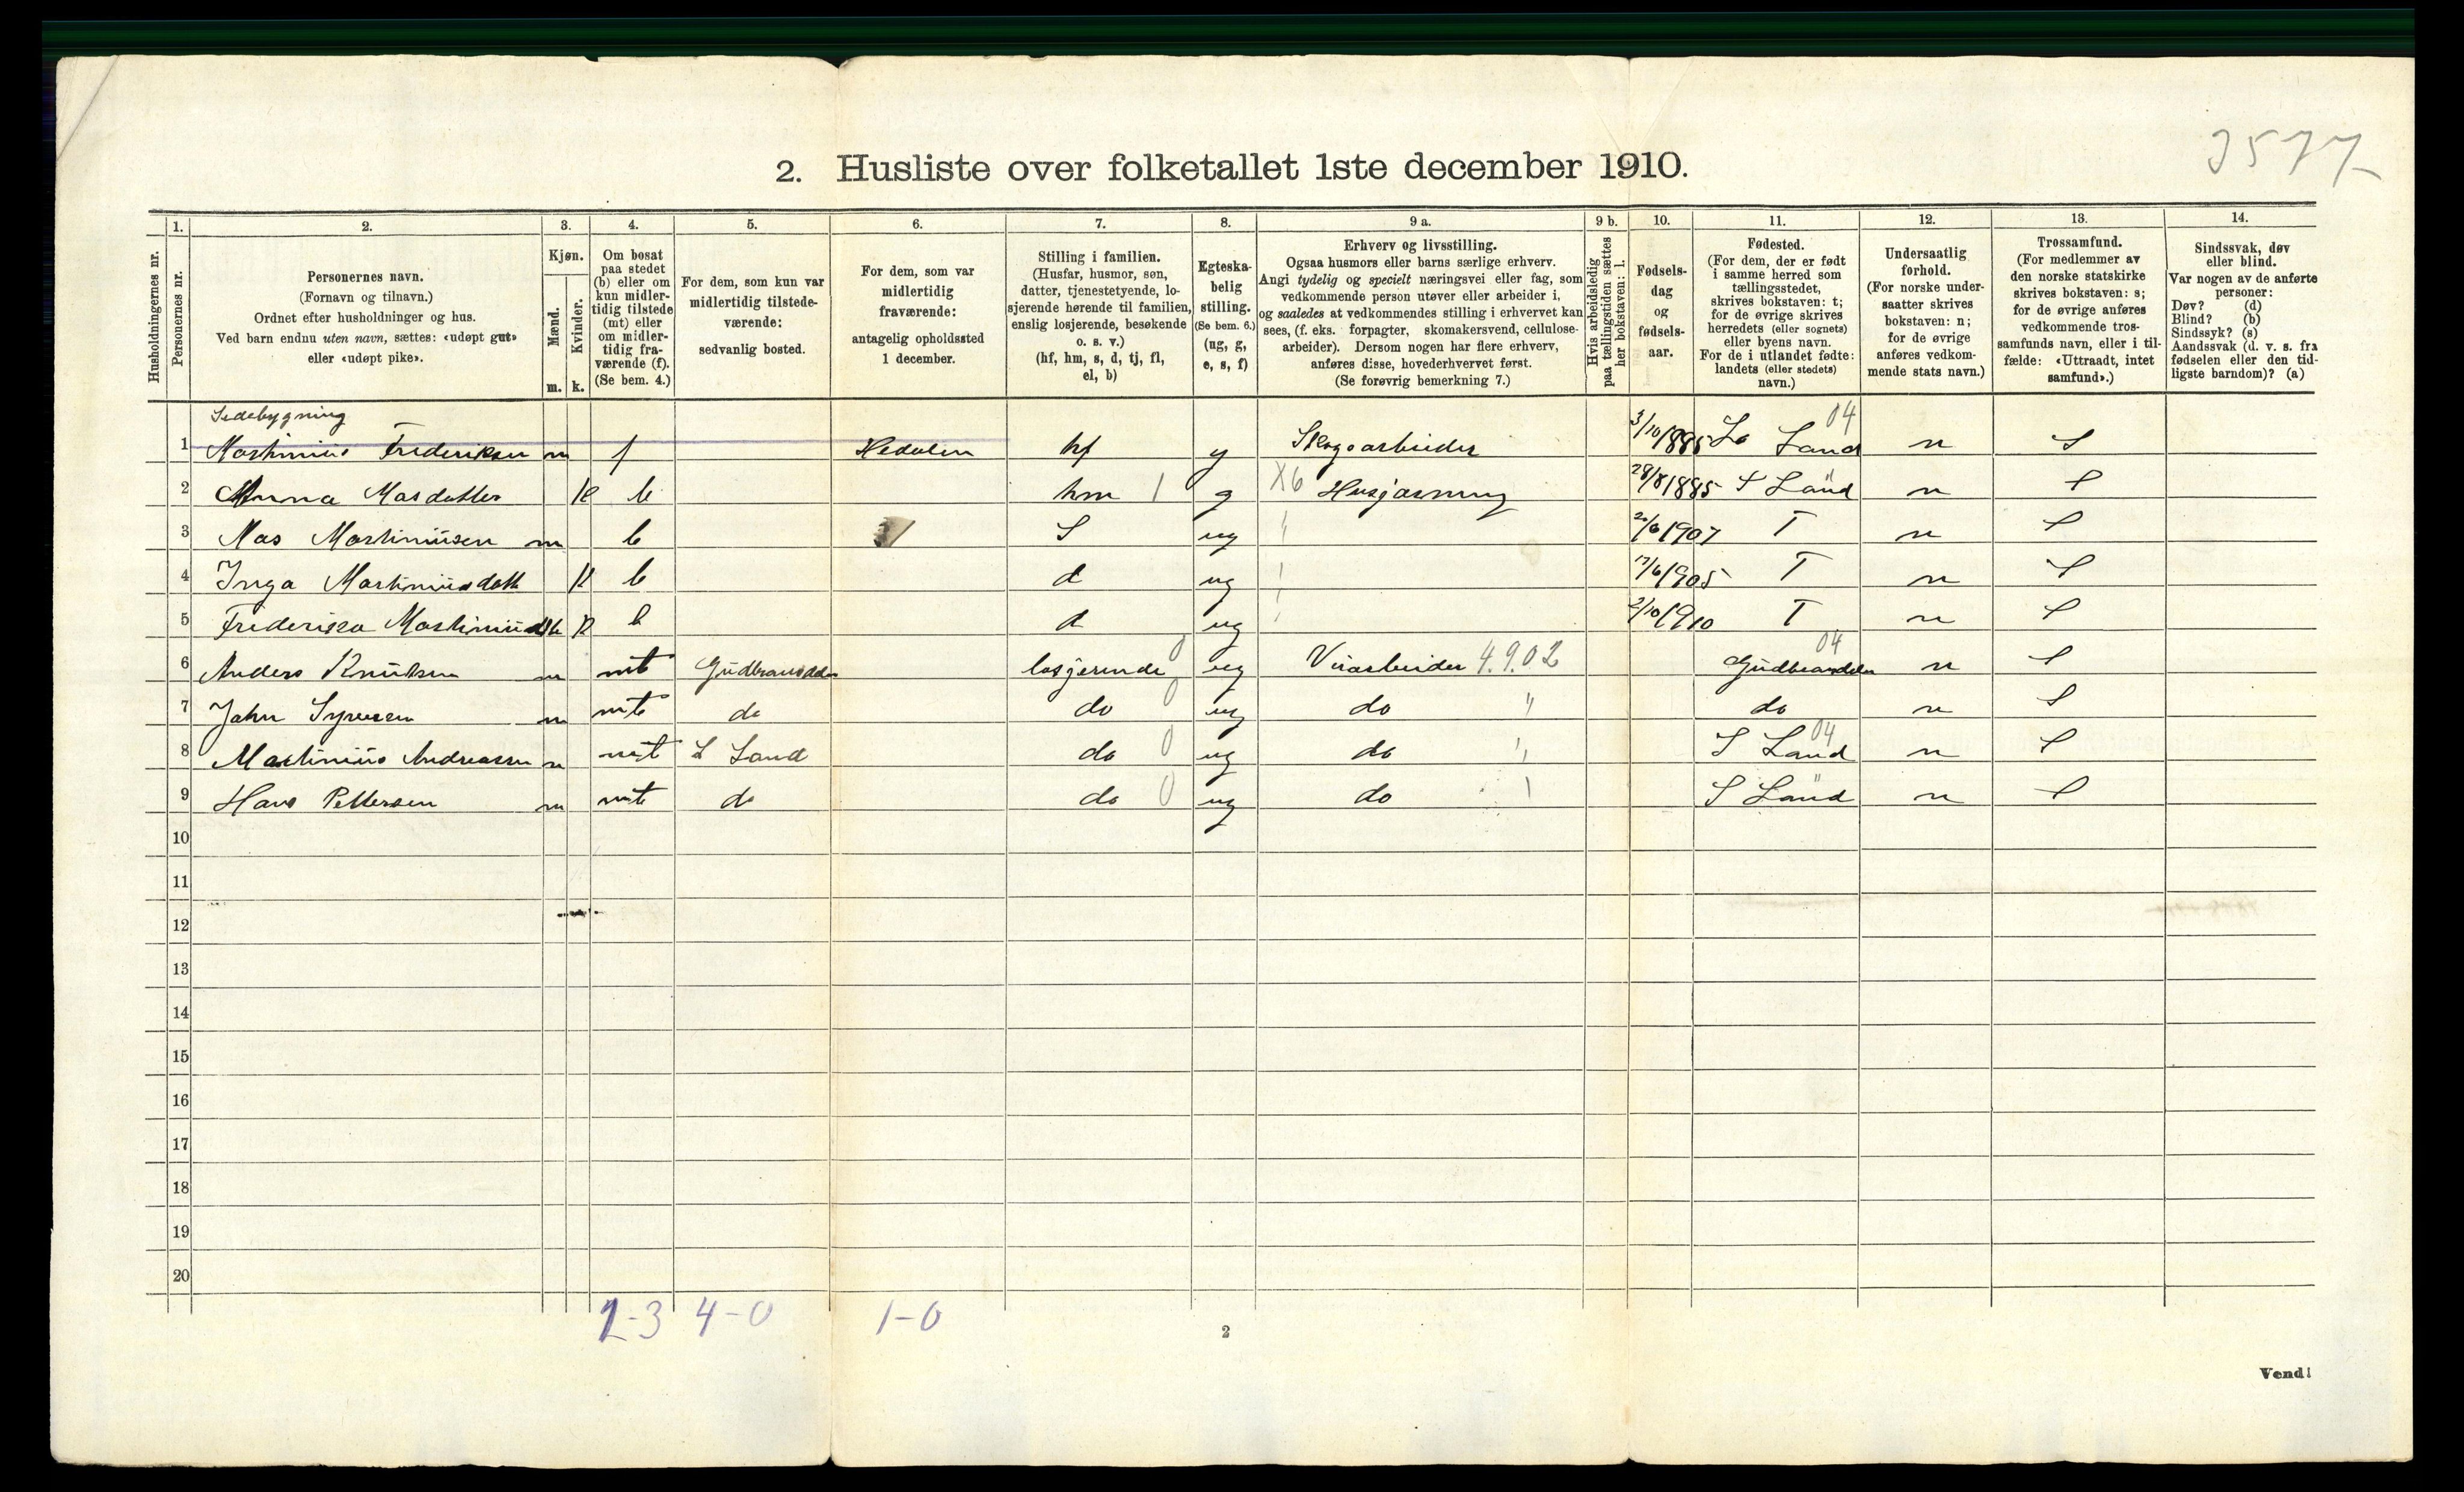 3577
2. Husliste over folketallet 1ste december 1910.
Husholdningernes nr.
1.
Personernes nr.
2.
Personernes navn.
(Fornavn og tilnavn.)
Ordnet efter husholdninger og hus.
Ved barn endnu uten navn, sættes: «udøpt gut»
eller «udøpt pike».
3.
Kjøn.
Mænd.
Kvinder.
m. k.
4.
Om bosat
paa stedet
(b) eller om
kun midler-
tidig tilstede
(mt) eller
om midler-
tidig fra-
værende (f).
(Se bem. 4.)
5.
For dem, som kun var
midlertidig tilstede-
værende:
sedvanlig bosted.
6.
For dem, som var
midlertidig
fraværende:
antagelig opholdssted
1 december.
7.
Stilling i familien.
(Husfar, husmor, søn,
datter, tjenestetyende, lo-
sjerende hørende til familien,
enslig losjerende, besøkende
o. s. v.)
(hf, hm, s, d, tj, fl,
el, b)
8.
Egteska-
belig
stilling.
(Se bem. 6.)
(ug, g,
e, s, f)
9 a.
Erhverv og livsstilling.
Ogsaa husmors eller barns særlige erhverv.
Angi tydelig og specielt næringsvei eller fag, som
vedkommende person utøver eller arbeider i,
og saaledes at vedkommendes stilling i erhvervet kan
sees, (f. eks. forpagter, skomakersvend, cellulose-
arbeider). Dersom nogen har flere erhverv,
anføres disse, hovederhvervet først.
(Se forøvrig bemerkning 7.)
9 b.
Hvis arbeidsledig
paa tællingstiden sættes
her bokstaven: l.
10.
Fødsels-
dag
og
fødsels-
aar.
11.
Fødested.
(For dem, der er født
i samme herred som
tællingsstedet,
skrives bokstaven: t;
for de øvrige skrives
herredets (eller sognets)
eller byens navn.
For de i utlandet fødte:
landets (eller stedets)
navn.)
12.
Undersaatlig
forhold.
(For norske under-
saatter skrives
bokstaven: n;
for de øvrige
anføres vedkom-
mende stats navn.)
13.
Trossamfund.
(For medlemmer av
den norske statskirke
skrives bokstaven: s;
for de øvrige anføres
vedkommende tros-
samfunds navn, eller i til-
fælde: «Uttraadt, intet
samfund».)
14.
Sindssvak, døv
eller blind.
Var nogen av de anførte
personer:
Døv? (d)
Blind? (b)
Sindssyk? (s)
Aandssvak (d. v. s. fra
fødselen eller den tid-
ligste barndom)? (a)
Sidebygning
1 Martinius Frederiksen m f Hedalen hf g Skogsarbeider 3/10 1885 S Land 04 n S
2 Anna Masdatter k b hm 1 g X6 Husgjærning 28/8 1885 S Land " n S
3 Mas Martiniusen m b S ug " 1907 T n S
4 Inga Martiniusdatt k b d ug " 1905 T n S
5 k b d ug " 2/10 1910 T n S
6 Anders Knutsen m mt Gudbransdalen losjerende 0 ug 4.9.02 Gudbransdalen 04 n S
7 John m mt do do 0 ug do " do n S
8 Martinius Andreassen m mt S Land do 0 ug do " S Land 04 n S
9 Hans Pettersen m mt do do 0 ug do " S Land " n S
10
11
12
13
14
15
16
17
18
19
20
1-3 4-0 1-0
2
Vend!